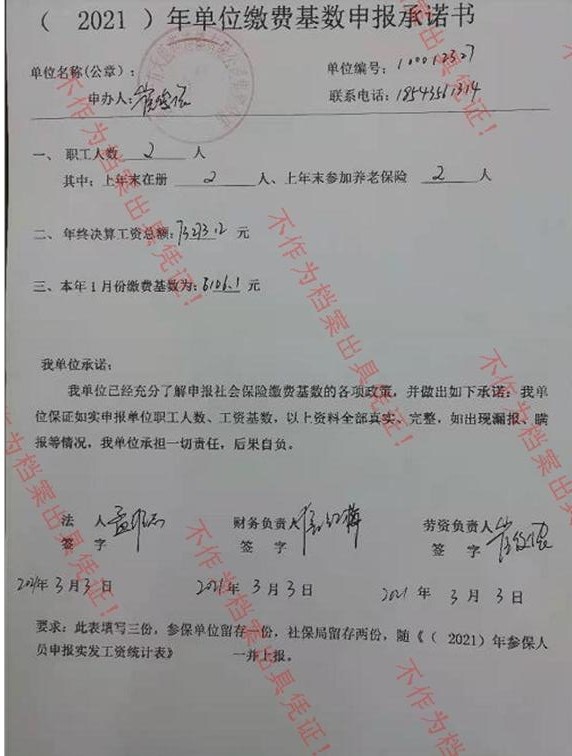 （ 2021 ）年单位缴费基数申报承诺书
单位名称(公章)：
单位编号：100012327
申办人：
联系电话：18543561314
一、 职工人数 2 人
其中：上年末在册 2 人、上年末参加养老保险 2 人
二、年终决算工资总额：73273.12 元
三、本年1月份缴费基数为：6106.1 元
我单位承诺：
我单位已经充分了解申报社会保险缴费基数的各项政策，并做出如下承诺：我单
位保证如实申报单位职工人数、工资基数，以上资料全部真实、完整，如出现漏报、瞒
报等情况，我单位承担一切责任，后果自负。
法 人 财务负责人 劳资负责人
签 字 签 字 签 字
2021年3月3日 2021年3月3日 2021年3月3日
要求：此表填写三份，参保单位留存一份，社保局留存两份，随《（ 2021）年参保人
员申报实发工资统计表》 一并上报。
不作为档案出具凭证！
不作为档案出具凭证！
不作为档案出具凭证！
不作为档案出具凭证！
不作为档案出具凭证！
不作为档案出具凭证！
不作为档案出具凭证！